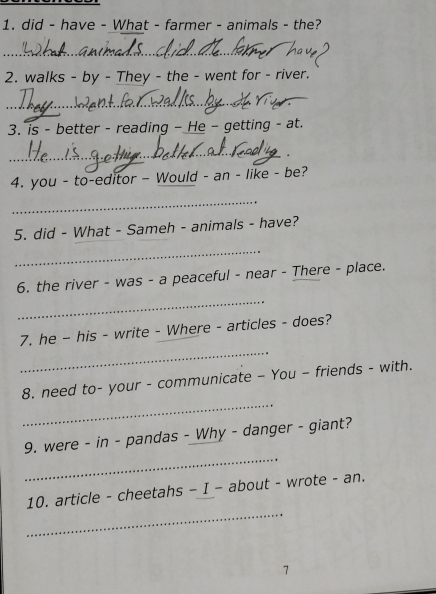 sentences:
1. did - have - What - farmer - animals - the?
What animals did the farmer have?
2. walks - by - They - the - went for - river.
They went for walks by the river.
3. is - better - reading – He – getting - at.
He is getting better at reading.
4. you - to-editor – Would - an - like - be?
5. did - What - Sameh - animals - have?
6. the river - was - a peaceful - near - There - place.
7. he – his - write - Where - articles - does?
8. need to- your - communicate – You – friends - with.
9. were - in - pandas - Why - danger - giant?
10. article - cheetahs – I – about - wrote - an.
7